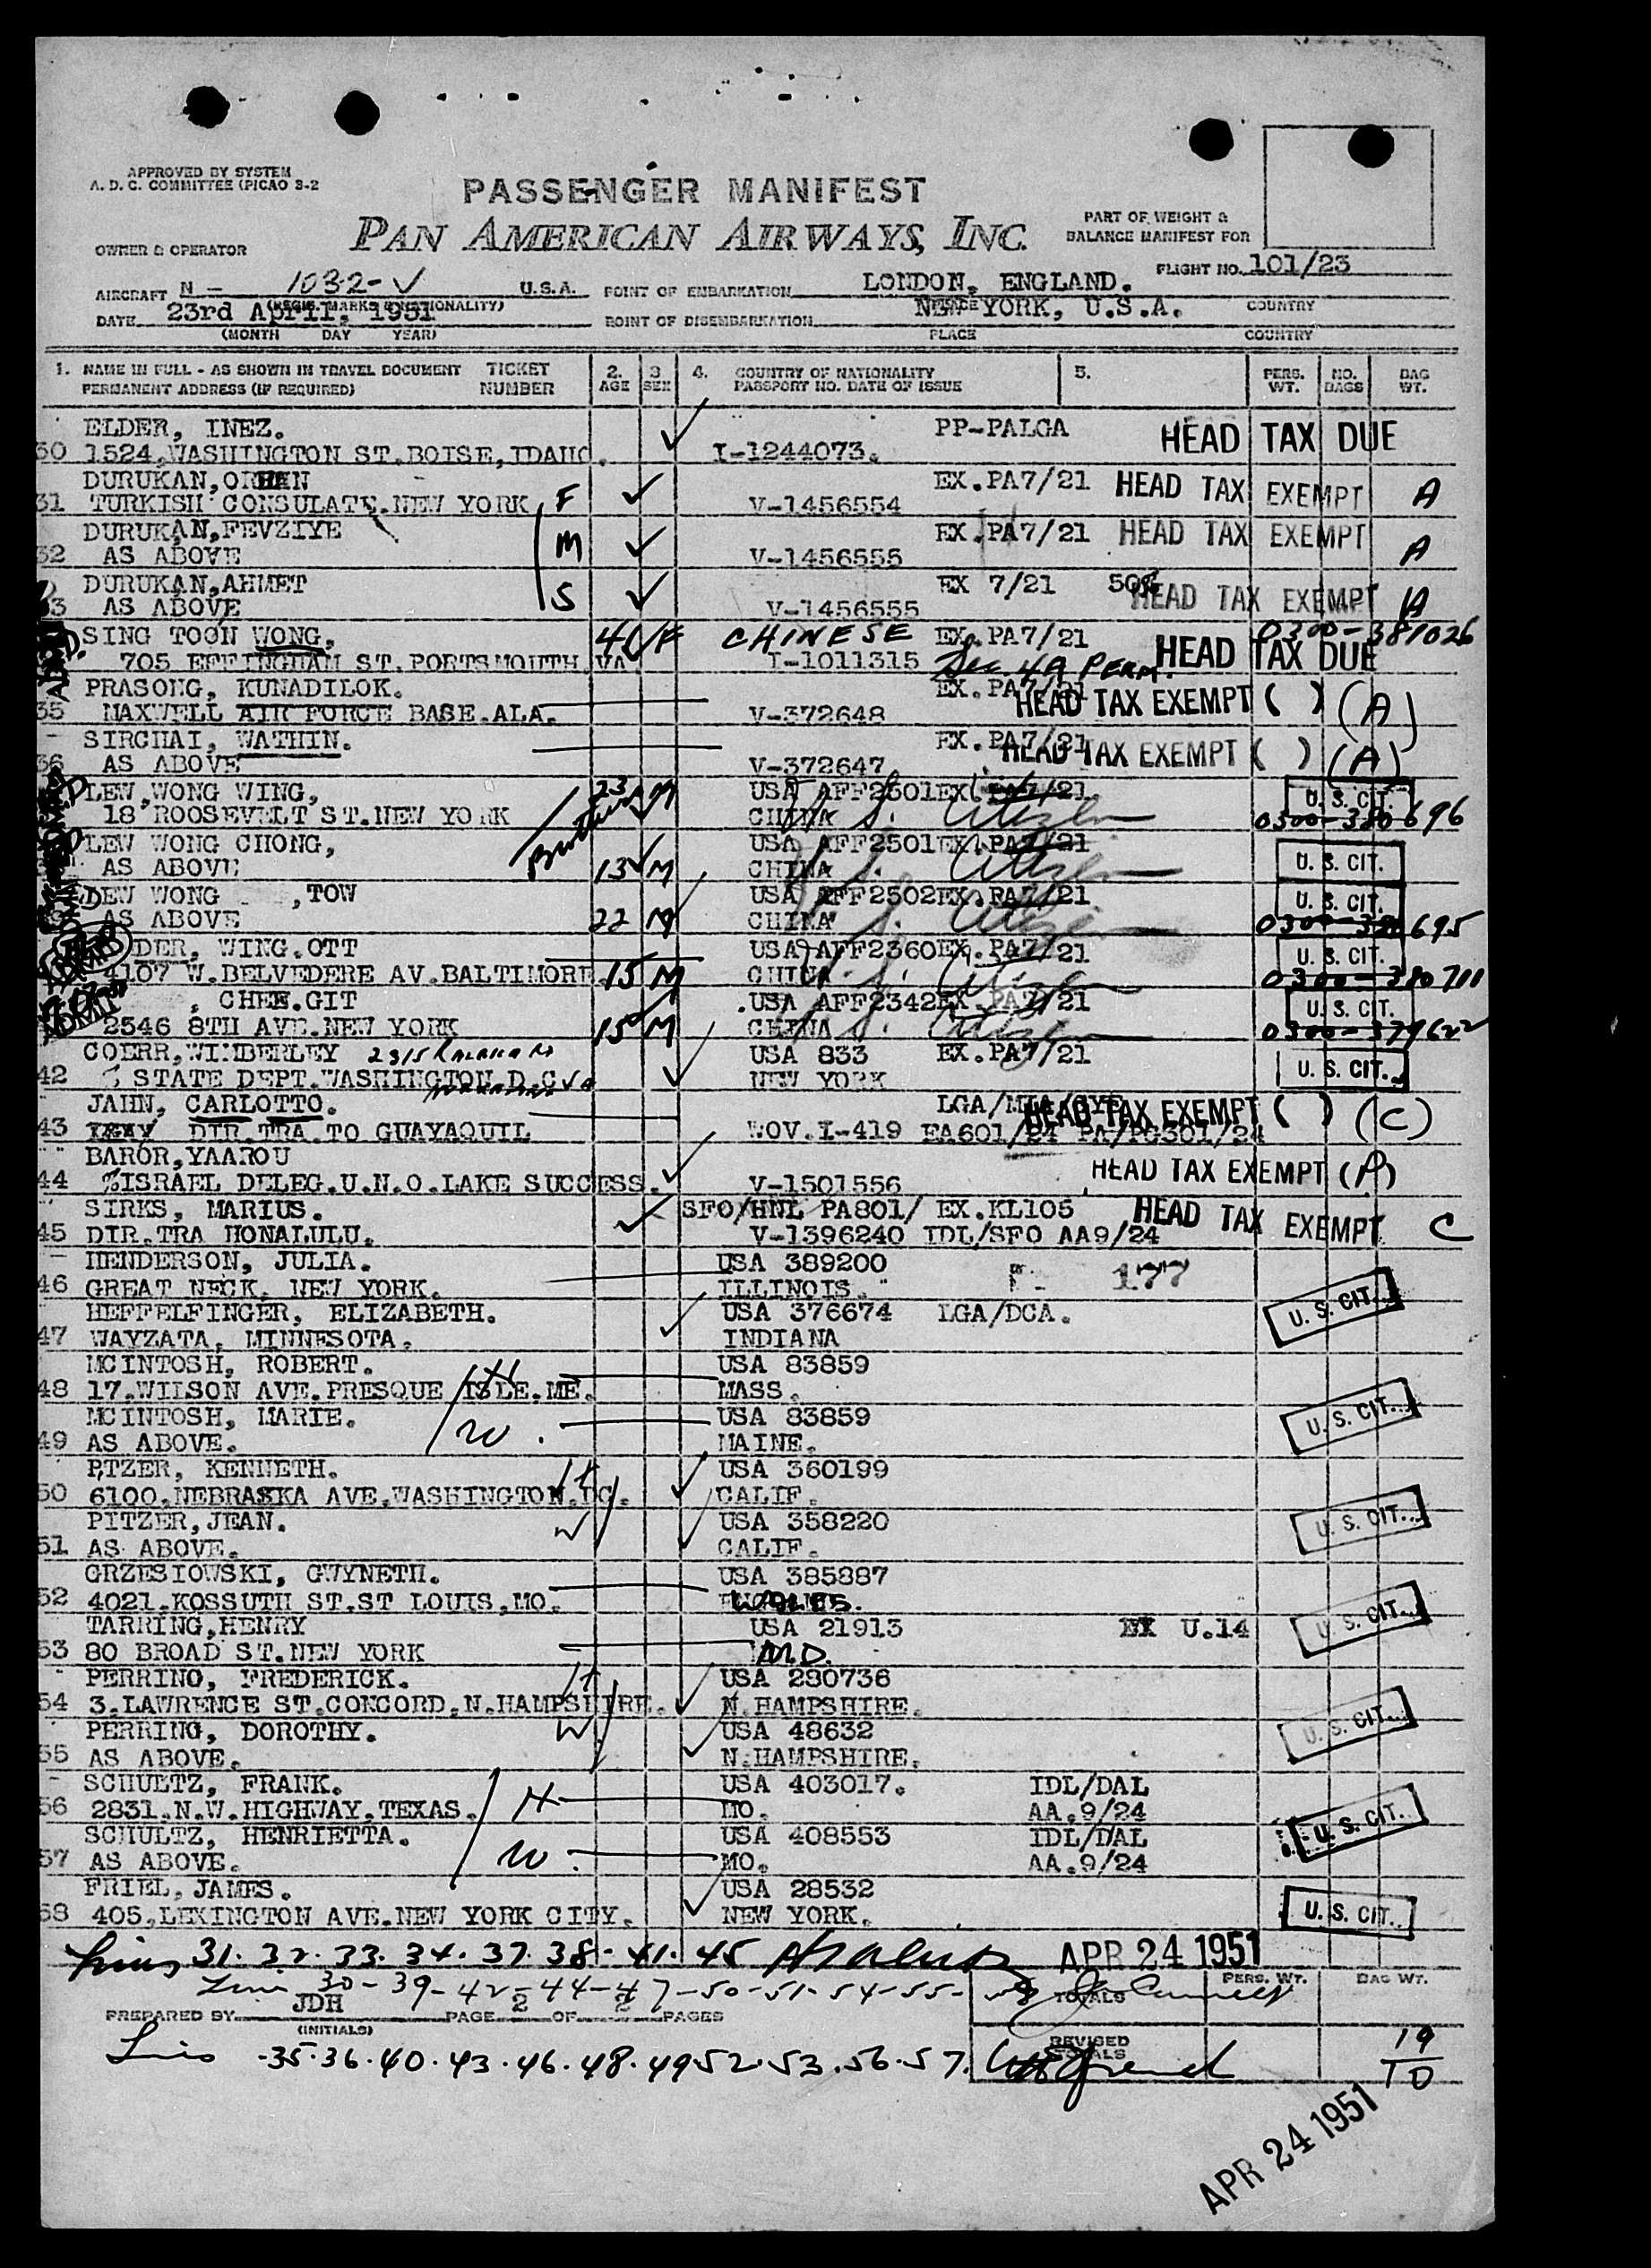 APPROVED BY SYSTEM
A. D. C. COMMITTEE (PICAO 3-2
PASSENGER MANIFEST
PAN AMERICAN AIRWAYS, INC.
PART OF WEIGHT &
BALANCE MANIFEST FOR
OWNER & OPERATOR
FLIGHT NO. 101/23
AIRCRAFT N - 1032-V U.S.A. POINT OF EMBARKATION LONDON, ENGLAND.
DATE 23rd April, 1951 POINT OF DISEMBARKATION NEW YORK, U.S.A. COUNTRY
(MONTH DAY YEAR) PLACE COUNTRY
1. NAME IN FULL - AS SHOWN IN TRAVEL DOCUMENT TICKET 2. 3 4. COUNTRY OF NATIONALITY 5. PERS. NO. BAG
PERMANENT ADDRESS (IF REQUIRED) NUMBER AGE SEX PASSPORT NO. DATE OF ISSUE WT. BAGS WT.
ELDER, INEZ. PP-PALGA HEAD TAX DUE
30 1524.WASHINGTON ST.BOISE,IDAHO. I-1244073.
DURUKAN, EX.PA7/21 HEAD TAX EXEMPT A
31 TURKISH CONSULATE.NEW YORK F V-1456554
DURUKAN,FEVZIYE EX.PA7/21 HEAD TAX EXEMPT A
32 AS ABOVE M V-1456555
DURUKAN,AHMET EX 7/21 50% HEAD TAX EXEMPT A
33 AS ABOVE S V-1456555
SING TOON WONG, F CHINESE EX.PA7/21 0300-381026
705 EFFINGHAM ST.PORTSMOUTH.VA I-1011315 Sec. 4A PERM. HEAD TAX DUE
PRASONG, KUNADILOK. EX.PA7/21
35 MAXWELL AIR FORCE BASE.ALA. V-372648 HEAD TAX EXEMPT ( ) (A)
SIRCHAI, WATHIN. EX.PA7/21
36 AS ABOVE V-372647 HEAD TAX EXEMPT ( ) (A)
LEW,WONG WING, 23 M USA AFF2501EX.PA7/21 U. S. CIT.
18 ROOSEVELT ST.NEW YORK Brothers CHINA U.S. Citizen 0300-380696
LEW WONG CHONG, USA AFF2501EX.PA7/21
AS ABOVE 13 M CHINA U.S. Citizen U. S. CIT.
DEW WONG ,TOW USA AFF2502EX.PA7/21 U. S. CIT.
AS ABOVE 22 M CHINA U.S. Citizen 0300-380695
DER, WING.OTT USA AFF2360EX.PA7/21 U. S. CIT.
4107 W.BELVEDERE AV.BALTIMORE 15 M CHINA U.S. Citizen 0300-380711
, CHEE.GIT USA AFF2342EX.PA7/21 U. S. CIT.
2546 8TH AVE.NEW YORK 15 M CHINA U.S. Citizen 0300-379622
COERR,WIMBERLEY USA 833 EX.PA7/21
42 % STATE DEPT.WASHINGTON.D.C NEW YORK U. S. CIT.
JAHN, CARLOTTO. LGA/MIA/GYE HEAD TAX EXEMPT ( ) (C)
43 DIR.TRA.TO GUAYAQUIL NOV.I-419 EA601/24 PA/PG301/24
BAROR,YAAROU HEAD TAX EXEMPT (A)
44 %ISRAEL DELEG.U.N.O.LAKE SUCCESS. V-1501556
SIRKS, MARIUS. SFO/HNL PA801/ EX.KL105 HEAD TAX EXEMPT C
45 DIR.TRA HONALULU. V-1396240 IDL/SFO AA9/24
HENDERSON, JULIA. USA 389200 177
46 GREAT NECK. NEW YORK. ILLINOIS. U. S. CIT.
HEFFELFINGER, ELIZABETH. USA 376674 LGA/DCA.
47 WAYZATA, MINNESOTA. INDIANA
MCINTOSH, ROBERT. H USA 83859
48 17.WILSON AVE.PRESQUE ISLE.ME. MASS. U. S. CIT.
MCINTOSH, MARIE. W. USA 83859
49 AS ABOVE. MAINE.
PTZER, KENNETH. H USA 360199
50 6100.NEBRASKA AVE.WASHINGTON.DC. CALIF. U. S. CIT.
PITZER,JEAN. W USA 358220
51 AS ABOVE. CALIF.
GRZESIOWSKI, GWYNETH. USA 385887
52 4021.KOSSUTH ST.ST LOUIS,MO. WALES. U. S. CIT.
TARRING,HENRY USA 21913 EX U.14
53 80 BROAD ST.NEW YORK M.D.
PERRINO, FREDERICK. H USA 290736
54 3.LAWRENCE ST.CONCORD.N.HAMPSHIRE. N.HAMPSHIRE. U. S. CIT.
PERRING, DOROTHY. W USA 48632
55 AS ABOVE. N.HAMPSHIRE.
SCHULTZ, FRANK. H USA 403017. IDL/DAL
56 2831.N.W.HIGHWAY.TEXAS. MO. AA.9/24 U. S. CIT.
SCHULTZ, HENRIETTA. W. USA 408553 IDL/DAL
57 AS ABOVE. MO. AA.9/24
FRIEL, JAMES. USA 28532
58 405.LEXINGTON AVE.NEW YORK CITY. NEW YORK. U. S. CIT.
Lines 31. 32. 33. 34. 37. 38. 41. 45 APR 24 1951
Line 30-39-42-44-47-50-51-54-55-58 TOTALS PERS. WT. BAG WT.
PREPARED BY JDH PAGE 2 OF 2 PAGES
(INITIALS)
Lines -35.36.40.43.46.48.49 52.53.56.57. REVISED TOTALS 19
10
APR 24 1951